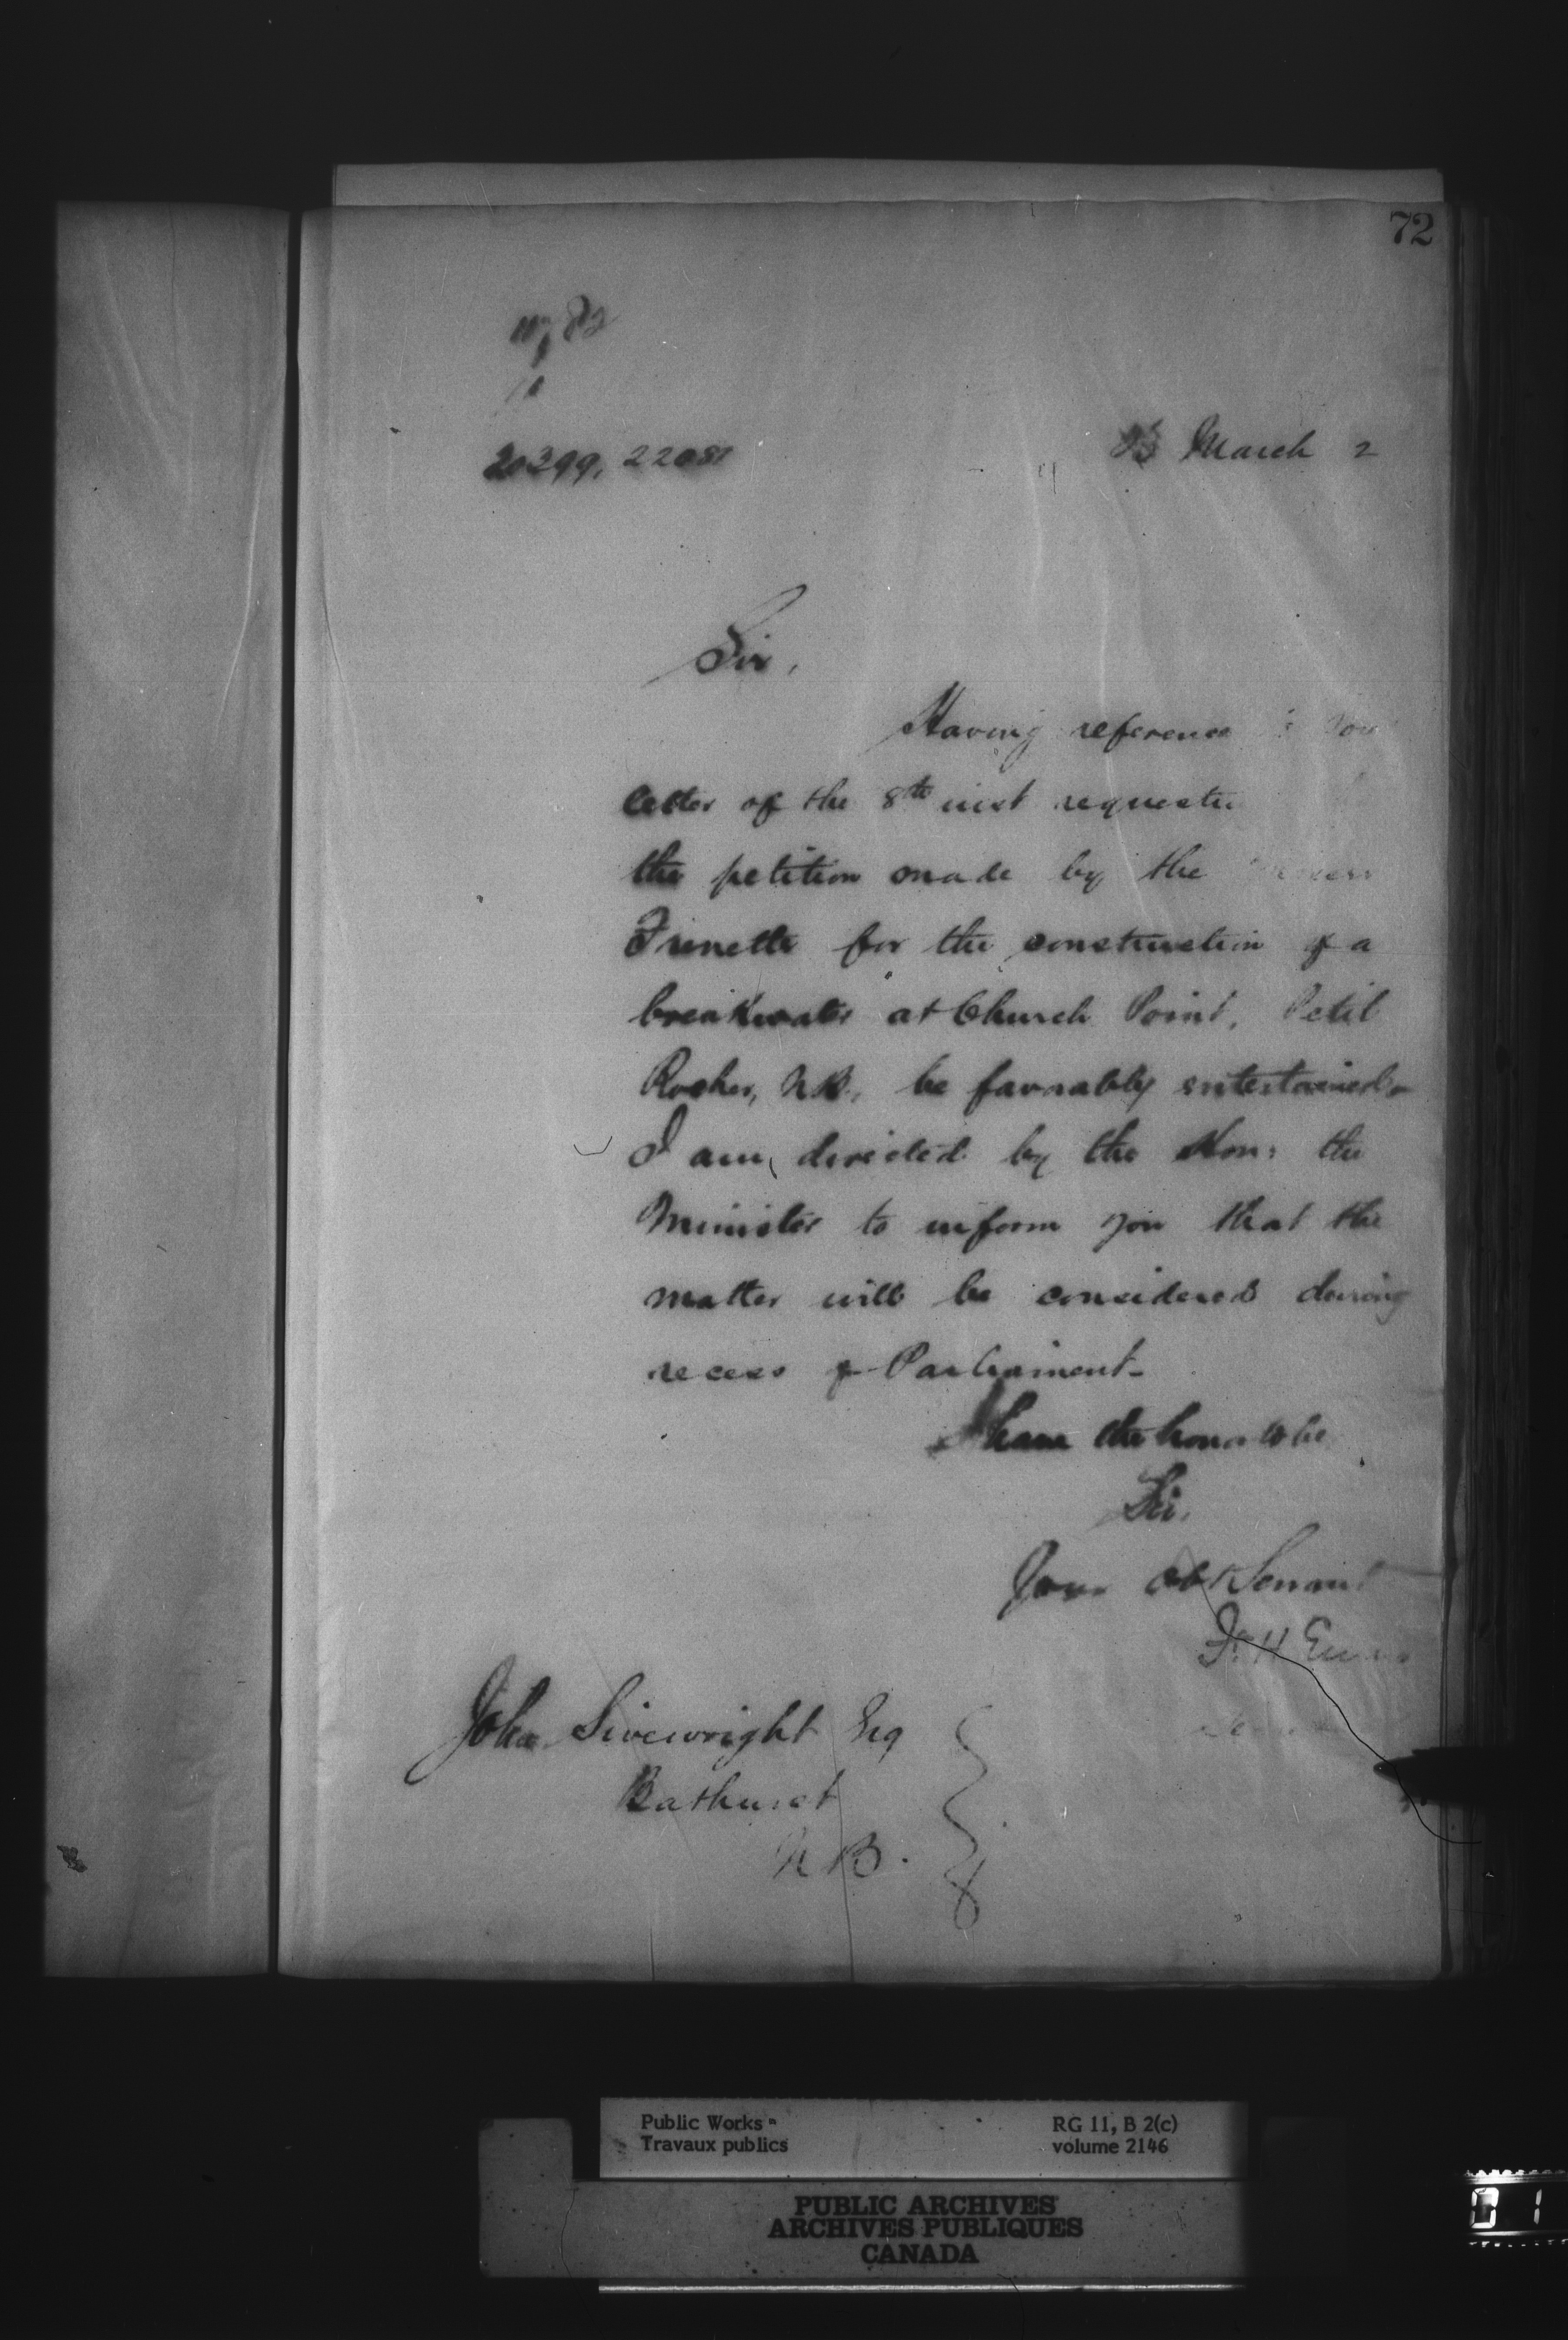 72
20399, 22081
March 2
Sir,
Having reference
letter of the 8th inst
the petition made by the
for the construction of a
breakwater at Church Point, Petit
Rocher, N.B., be favorably entertained
I am directed by the Hon: the
Minister to inform you that the
matter will be considered during
recess of Parliament-
I have the honor to be
Sir,
Your Obt Servant
F. H
John Sivewright Esq
Bathurst
N B.
Public Works
Travaux publics
RG 11, B 2(c)
volume 2146
PUBLIC ARCHIVES
ARCHIVES PUBLIQUES
CANADA
01